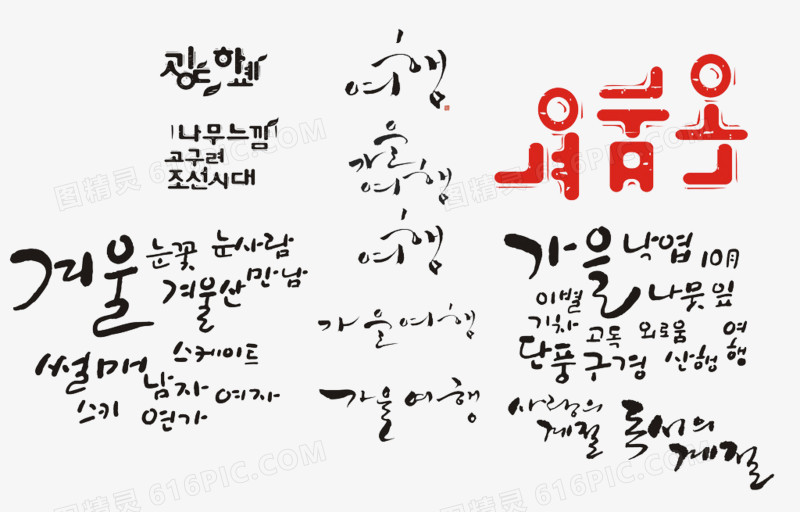 여행
나무느낌
고구려
조선시대
가을
여행
여행
가을여행
가을여행
겨울
눈꽃
눈사람
겨울산
만남
썰매
스케이트
남자
여자
스키
연가
가을
낙엽
10月
이별
나뭇잎
기차
고독
외로움
여행
단풍
구경
산행
사랑의
계절
독서의
계절
图精灵 616PIC.COM
图精灵 616PIC.COM
图精灵 616PIC.COM
图精灵 616PIC.COM